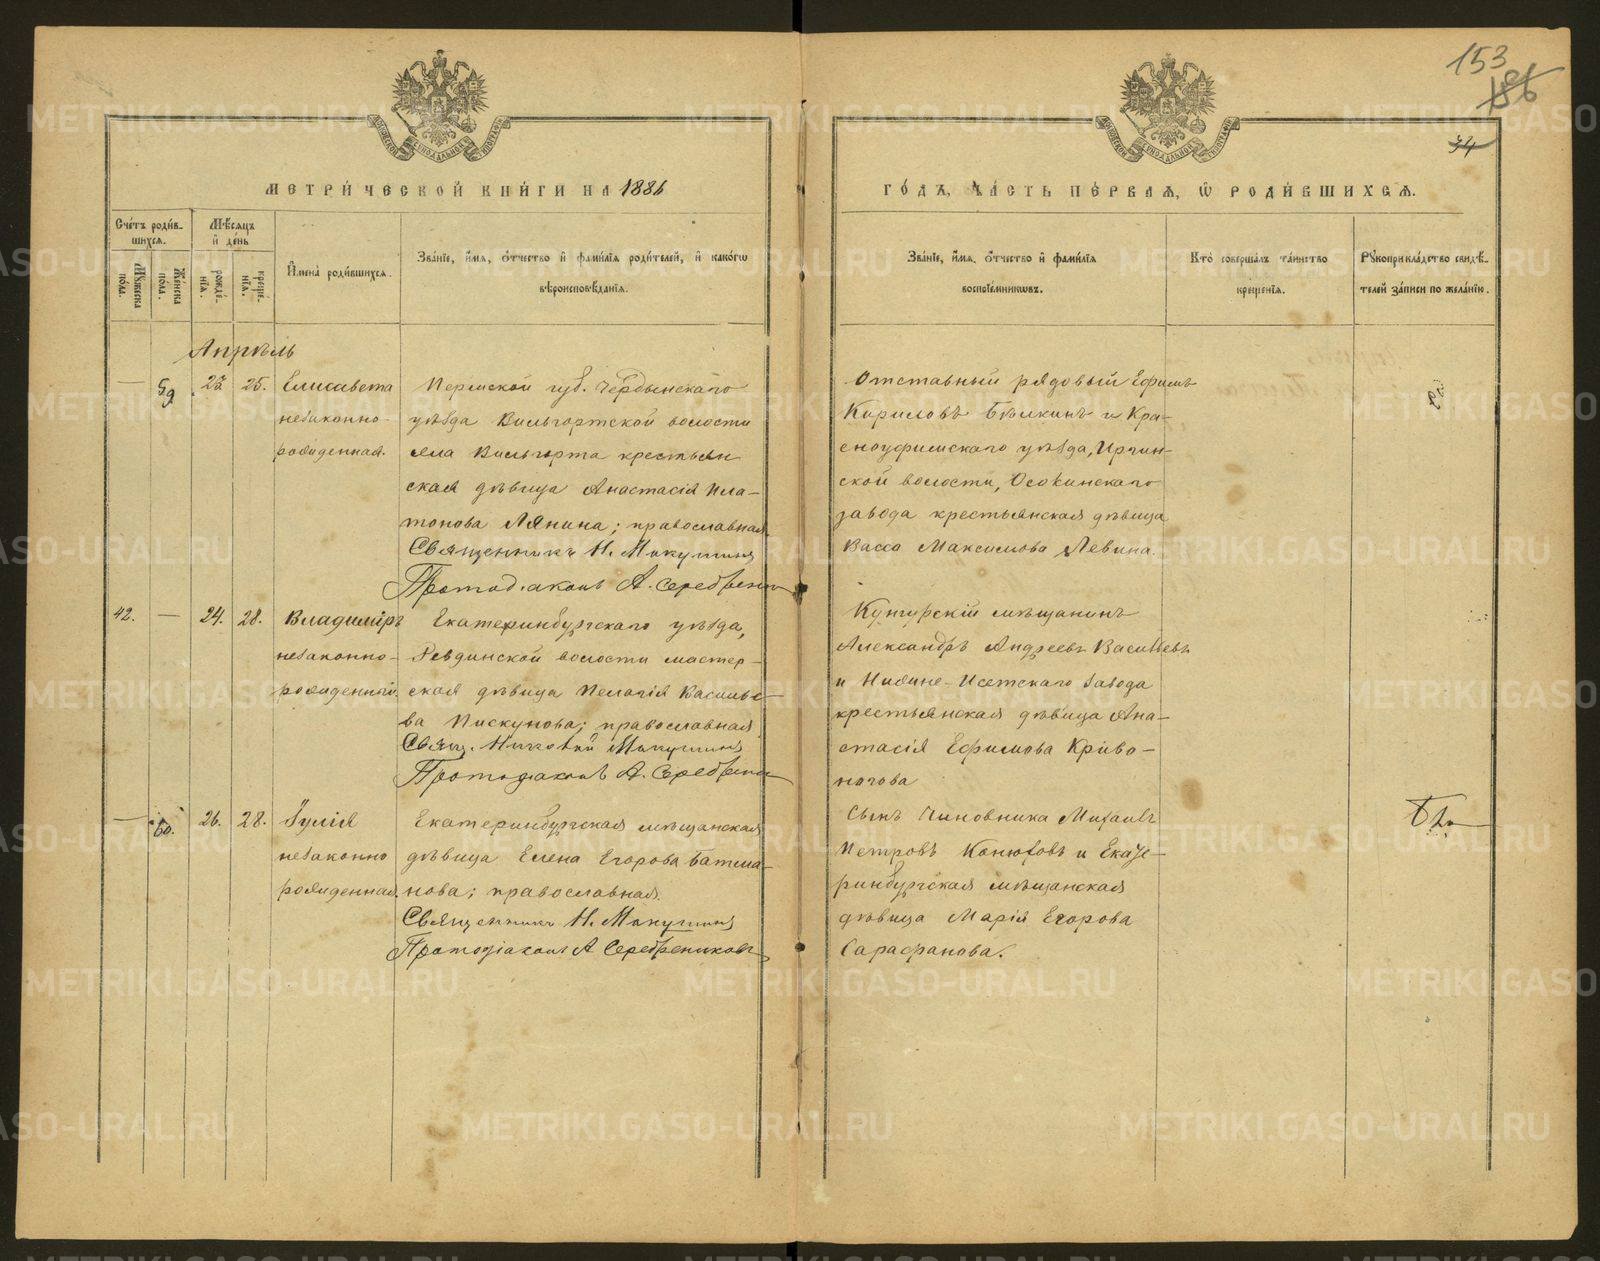 153
186
34
МЕТРИ́ЧЕСКОЙ КНИ́ГИ НА 1886
ГО́ДЪ, ЧА́СТЬ ПЕ́РВАЯ, Ѡ҆ РОДИ́ВШИХСЯ.
Сче́тъ роди́в-
шихся.
Му́жеска по́ла.
Же́нска по́ла.
Мѣ́сяцъ
и҆ де́нь
рожде́-
нїя.
креще́-
нїя.
И҆мена̀ роди́вшихся.
Зва́нїе, и҆́мя, ѻ҆́тчество и҆ фами́лїя роди́телей, и҆ како́гѡ
вѣроисповѣ́данїя.
Зва́нїе, и҆́мя, ѻ҆́тчество и҆ фами́лїя
воспрїе́мникѡвъ.
Кто̀ соверша́лъ та́инство
креще́нїя.
Рꙋкоприкла́дство свидѣ́-
телей за́писи по жела́нїю.
Апрѣль
— 59 23 25. Елисавета
незаконно-
рожденная.
Пермской губ. Чердынскаго
уѣзда Вильгортской волости
села Вильгорта крестьян
ская дѣвица Анастасія Пла-
тонова Лянина; православная
Священникъ Н. Макушинъ
Протодіаконъ А. Серебрени
Отставный рядовый Ефимъ
Кириловъ Бѣлкинъ и Кра-
сноуфимскаго уѣзда, Иргин-
ской волости, Осокинскаго
завода крестьянская дѣвица
Васса Максимова Левина.
42. — 24. 28. Владиміръ
незаконно-
рожденный.
Екатеринбургскаго уѣзда,
Ревдинской волости мастер-
ская дѣвица Пелагія Василье
ва Пискунова; православная
Свящ. Николай Макушинъ
Протодіаконъ А. Серебрени
Кунгурскій мѣщанинъ
Александръ Андреевъ Васильевъ
и Нижне-Исетскаго завода
крестьянская дѣвица Ана-
стасія Ефимова Криво-
ногова
— 60. 26. 28. Іулія
незаконно
рожденная.
Екатеринбургская мѣщанская
дѣвица Елена Егорова Батма-
нова; православная.
Священникъ Н. Макушинъ
Протодіаконъ А Серебрениковъ
Сынъ Чиновника Михаилъ
Петровъ Конюховъ и Екате-
ринбургская мѣщанская
дѣвица Марія Егорова
Сарафанова.